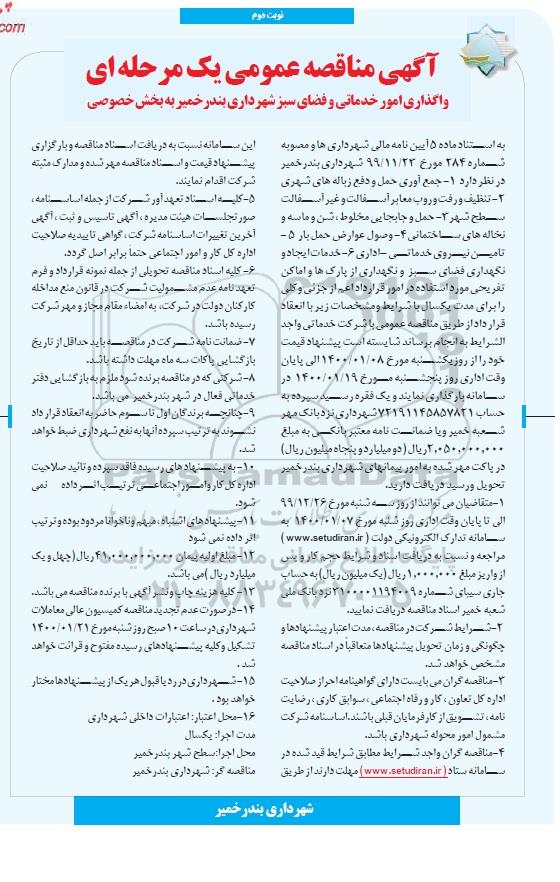 نوبت دوم
آگهی مناقصه عمومی یک مرحله ای
واگذاری امور خدماتی و فضای سبز شهرداری بندر خمیر به بخش خصوصی
به استناد ماده ۵ آیین نامه مالی شهرداری ها و مصوبه
شماره ۲۸۴ مورخ ۹۹/۱۱/۲۳ شهرداری بندرخمیر
در نظر دارد ۱- جمع آوری حمل و دفع زباله های شهری
۲- تنظیف و رفت و روب معابر آسفالت و غیر آسفالت
سطح شهر ۳- حمل و جابجایی مخلوط، شن و ماسه و
نخاله های ساختمانی ۴- وصول عوارض حمل بار ۵-
تامین نیروی خدماتی –اداری ۶- خدمات ایجاد و
نگهداری فضای سبز و نگهداری از پارک ها و اماکن
تفریحی مورد استفاده در امور قرارداد اعم از جزئی و کلی
را برای مدت یکسال با شرایط و مشخصات زیر با انعقاد
قرارداد از طریق مناقصه عمومی با شرکت خدماتی واجد
الشرایط به انجام برساند شایسته است پیشنهاد قیمت
خود را از روز یکشنبه مورخ ۱۴۰۰/۰۱/۰۸ الی پایان
وقت اداری روز پنجشنبه مورخ ۱۴۰۰/۰۱/۱۹ در
سامانه بارگذاری نمایند و یک فقره رسید سپرده به
حساب ۷۲۱۹۱۱۴۵۸۵۷۸۲۱ شهرداری نزد بانک مهر
شعبه خمیر و یا ضمانت نامه معتبر بانکی به مبلغ
۲,۰۵۰,۰۰۰,۰۰۰ ریال (دو میلیارد و پنجاه میلیون ریال)
در پاکت مهر شده به امور پیمانهای شهرداری بندرخمیر
تحویل و رسید دریافت دارید.
۱- متقاضیان می توانند از روز سه شنبه مورخ ۹۹/۱۲/۲۶
الی تا پایان وقت اداری روز شنبه مورخ ۱۴۰۰/۰۱/۰۷ به
سامانه تدارک الکترونیکی دولت ( www.setudiran.ir )
مراجعه و نسبت به دریافت اسناد و شرایط حجم کار و پس
از واریز مبلغ ۱,۰۰۰,۰۰۰ ریال (یک میلیون ریال) به حساب
جاری سیبای شماره ۲۱۰۰۰۰۱۱۹۴۰۰۹ نزد بانک ملی
شعبه خمیر اسناد مناقصه دریافت نمایید.
۲- شرایط شرکت در مناقصه، مدت اعتبار پیشنهادها و
چگونگی و زمان تحویل پیشنهادها متعاقباً در اسناد مناقصه
مشخص خواهد شد.
۳- مناقصه گران می بایست دارای گواهینامه احراز صلاحیت
اداره کل تعاون ، کار و رفاه اجتماعی ، سوابق کاری ، رضایت
نامه ، تشویق از کارفرمایان قبلی باشند. اساسنامه شرکت
مشمول امور محوله شهرداری باشد.
۴- مناقصه گران واجد شرایط مطابق شرایط قید شده در
سامانه ستاد ( www.setudiran.ir ) مهلت دارند از طریق
این سامانه نسبت به دریافت اسناد مناقصه و بارگزاری
پیشنهاد قیمت و اسناد مناقصه مهر شده و مدارک مثبته
شرکت اقدام نمایند.
۵- کلیه اسناد تعهدآور شرکت از جمله اساسنامه ،
صورتجلسات هیئت مدیره ، آگهی تاسیس و ثبت ، آگهی
آخرین تغییرات اساسنامه شرکت ، گواهی تاییدیه صلاحیت
اداره کل کار و امور اجتماعی حتماً برابر اصل گردد.
۶- کلیه اسناد مناقصه تحویلی از جمله نمونه قرارداد و فرم
تعهدنامه عدم مشمولیت شرکت در قانون منع مداخله
کارکنان دولت در شرکت، به امضاء مقام مجاز و مهر شرکت
رسیده باشد.
۷- ضمانت نامه شرکت در مناقصه باید حداقل از تاریخ
بازگشایی پاکات سه ماه مهلت داشته باشد.
۸- شرکتی که در مناقصه برنده شود ملزم به بازگشایی دفتر
خدماتی فعال در شهر بندرخمیر می باشد.
۹- چنانچه برندگان اول تا سوم حاضر به انعقاد قرارداد
نشوند به ترتیب سپرده آنها به نفع شهرداری ضبط خواهد
شد.
۱۰- به پیشنهادهای رسیده فاقد سپرده و تائید صلاحیت
اداره کل کار و امور اجتماعی ترتیب اثر داده نمی
شود.
۱۱- پیشنهادهای اشتباه، مبهم و ناخوانا مردود بوده و ترتیب
اثر داده نمی شود
۱۲- مبلغ اولیه پیمان ۴۱,۰۰۰,۰۰۰,۰۰۰ ریال (چهل و یک
میلیارد ریال )می باشد.
۱۳- کلیه هزینه چاپ و نشر آگهی با برنده مناقصه می باشد.
۱۴- در صورت عدم تجدید مناقصه کمیسیون عالی معاملات
شهرداری در ساعت ۱۰ صبح روز شنبه مورخ ۱۴۰۰/۰۱/۲۱
تشکیل و کلیه پیشنهادهای رسیده مفتوح و قرائت خواهد
شد .
۱۵- شهرداری در رد یا قبول هر یک از پیشنهادها مختار
خواهد بود .
۱۶- محل اعتبار: اعتبارات داخلی شهرداری
مدت اجرا: یکسال
محل اجرا: سطح شهر بندرخمیر
مناقصه گر: شهرداری بندرخمیر
شهرداری بندر خمیر